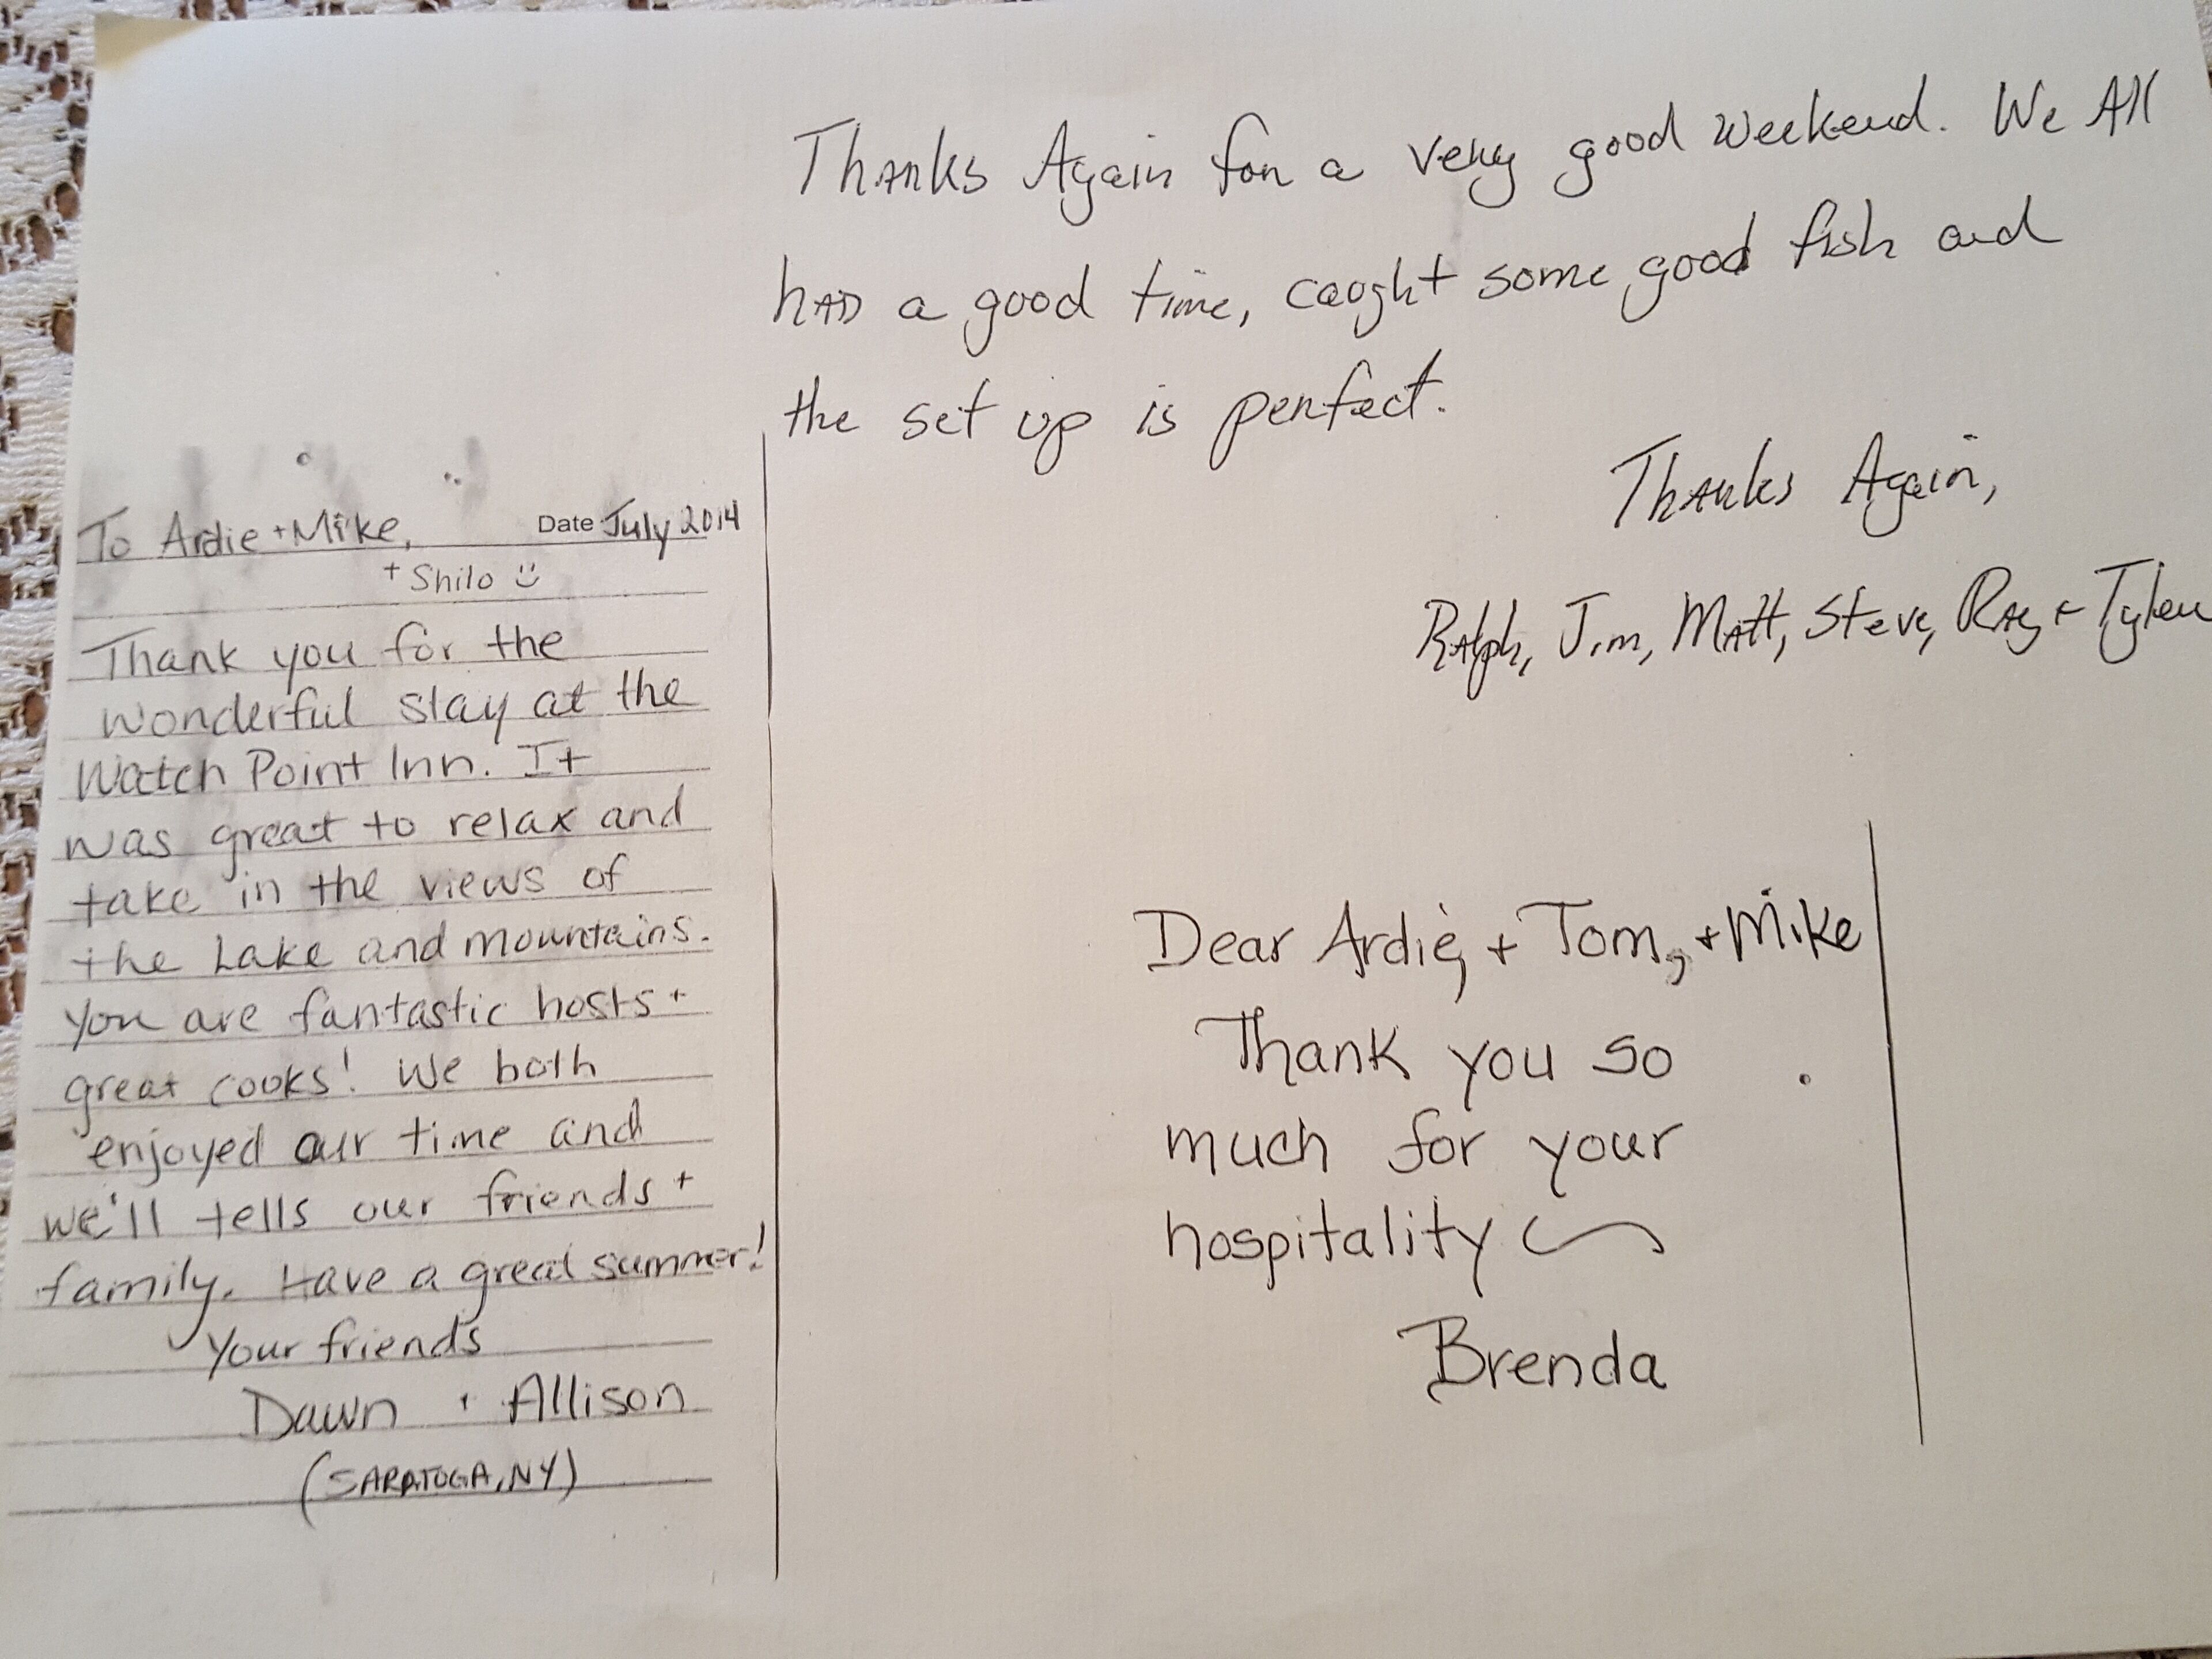 Thanks Again for a very good weekend. We All
had a good time, caught some good fish and
the set up is perfect.
Thanks Again,
Ralph, Jim, Matt, Steve, Ray + Tyler
To Ardie + Mike, Date July 2014
+ Shilo :)
Thank you for the
wonderful stay at the
Watch Point Inn. It
was great to relax and
take in the views of
the Lake and mountains.
You are fantastic hosts +
great cooks! We both
enjoyed our time and
we'll tells our friends +
family. Have a great summer!
Your friends
Dawn + Allison
(SARATOGA, NY)
Dear Ardie, + Tom, + Mike
Thank you so
much for your
hospitality
Brenda